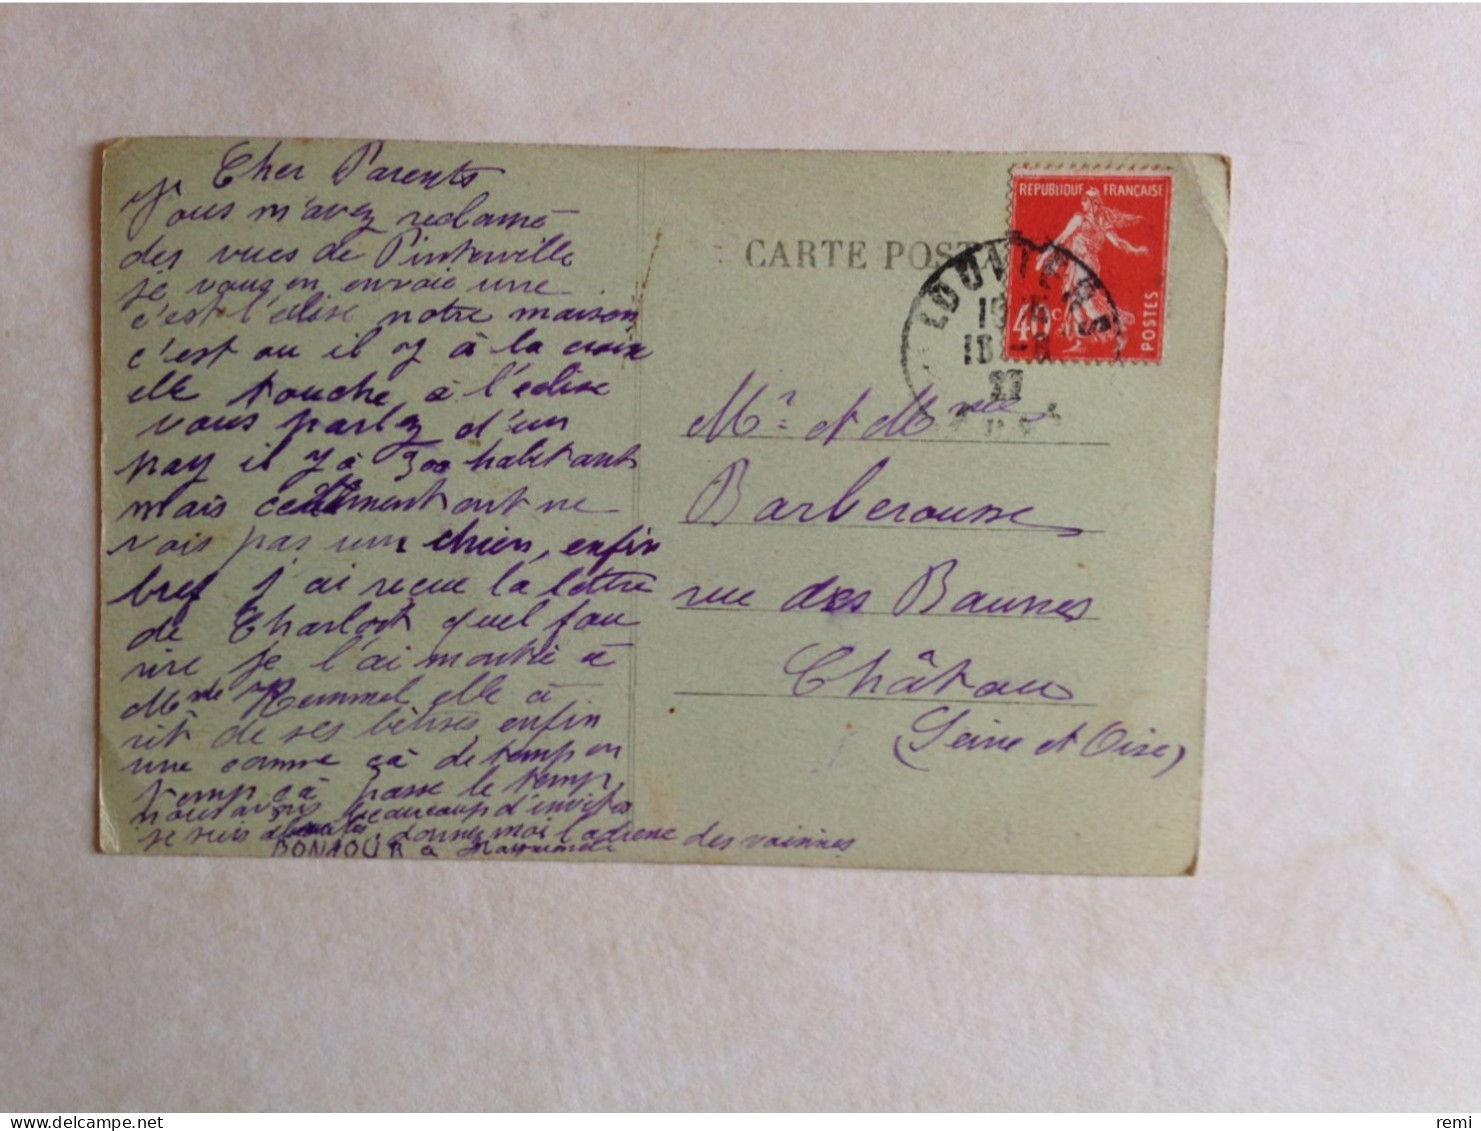 Cher Parents
Vous m'avez reclamé
des vues de Pinterville
je vous en envoie une
c'est l'élise notre maison
c'est ou il y à la croix
elle touche à l'eclise
vous parlez d'un
pay il y à 300 habitants
mais ont ne
vois pas un chien, enfin
bref j'ai reçue la lettre
de Charlot quel fou
rire je l'ai montré à
Mme Rummel elle à
rit de ses bêtises enfin
une comme çà de temp en
temp çà passe le temp,
nous avons beaucoup d'invités
je suis donnez moi l'adresse des voisines
BONJOUR à
CARTE POSTALE
REPUBLIQUE FRANÇAISE
POSTES
40c
LOUVIERS
27
Mr et Mme
Barberousse
rue des Baunes
Châtou
(Seine et Oise)
remi
delcampe.net